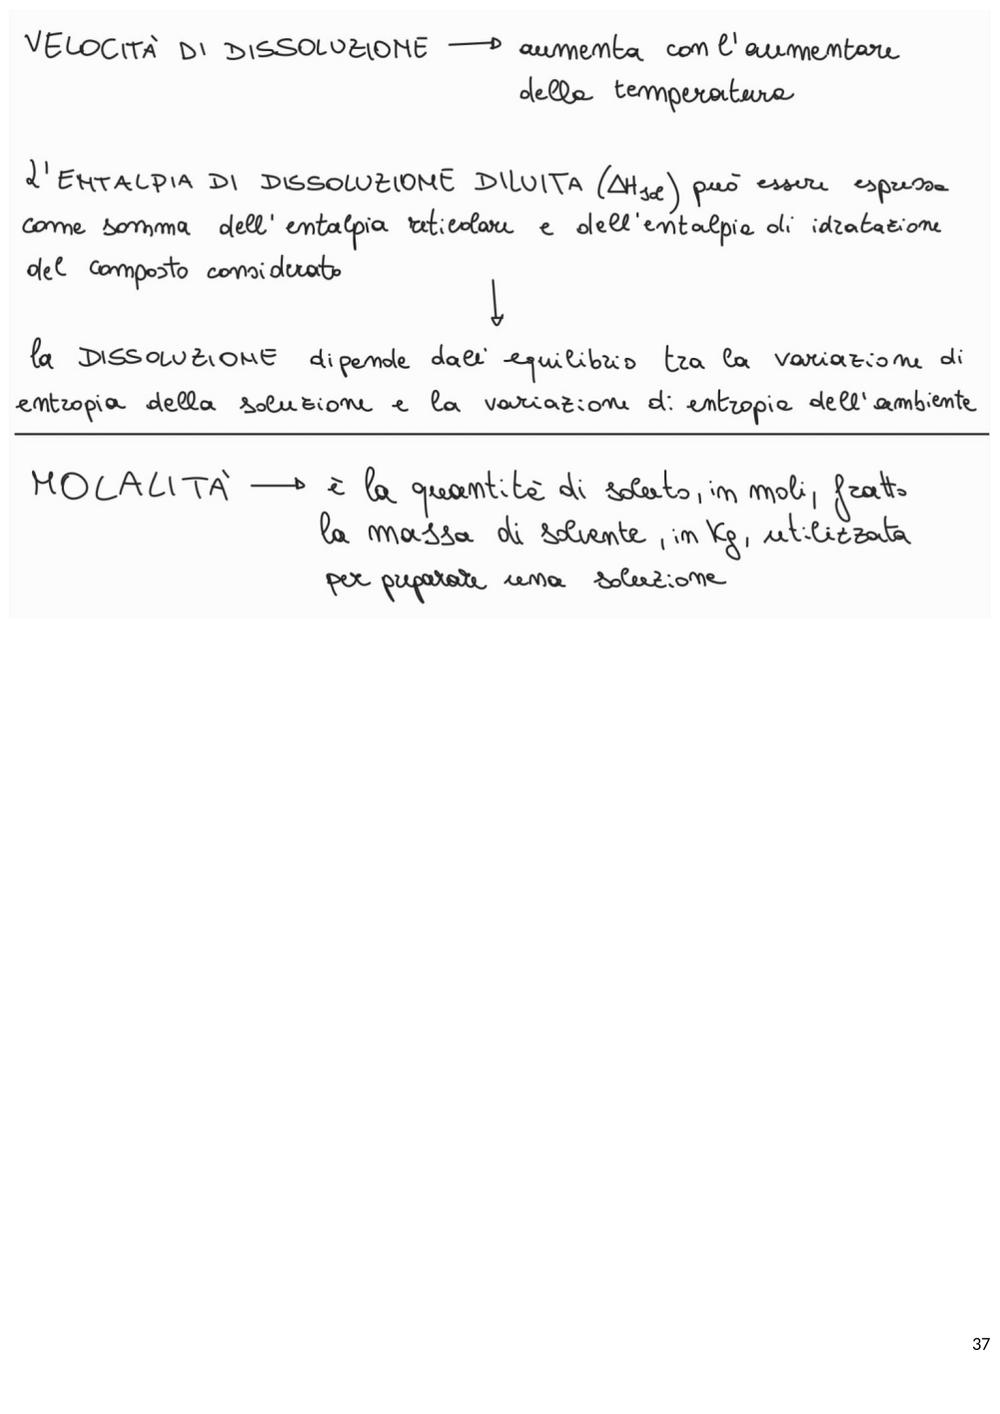 VELOCITÀ DI DISSOLUZIONE → aumenta con l'aumentare
della temperatura
L'ENTALPIA DI DISSOLUZIONE DILUITA (ΔHsol) può essere espressa
come somma dell'entalpia reticolare e dell'entalpia di idratazione
del composto considerato
↓
la DISSOLUZIONE dipende dall'equilibrio tra la variazione di
entropia della soluzione e la variazione di entropia dell'ambiente
MOLALITÀ → è la quantità di soluto, in moli, fratto
la massa di solvente, in Kg, utilizzata
per preparare una soluzione
37